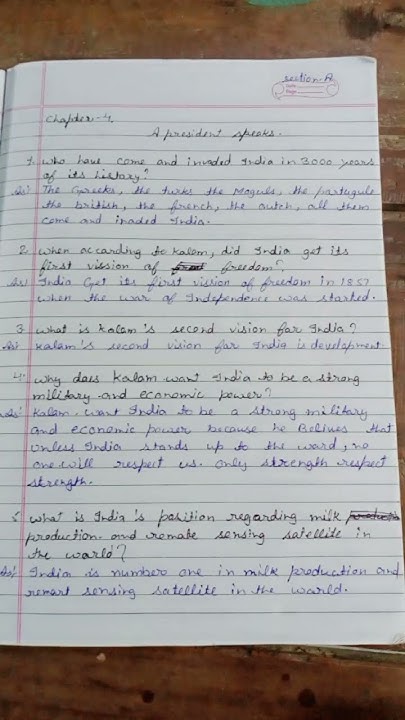 section-A
Date
Page
Chapter-4.
A president speaks.
1. who have come and invaded India in 3000 years
of its history?
Ans) The Greeks, the turks the Moguls, the partugule
the british, the french, the dutch, all them
come and inaded India.
2. when according to kalam, did India get its
first vission of freedom?
Ans) India Get its first vision of freedom in 1857
when the war of Independence was started.
3. what is kalam's second vision far India?
Ans) kalam's second vision far India is development.
4. why does kalam want India to be a strong
military and economic power?
Ans) kalam want India to be a strong military
and economic power because he Belives that
unless India stands up to the ward, no
one will respect us. only strength respect
strength.
5. what is India's position regarding milk
production and remate sensing satellite in
the warld?
Ans) India is number one in milk production and
remart sensing satellite in the warld.